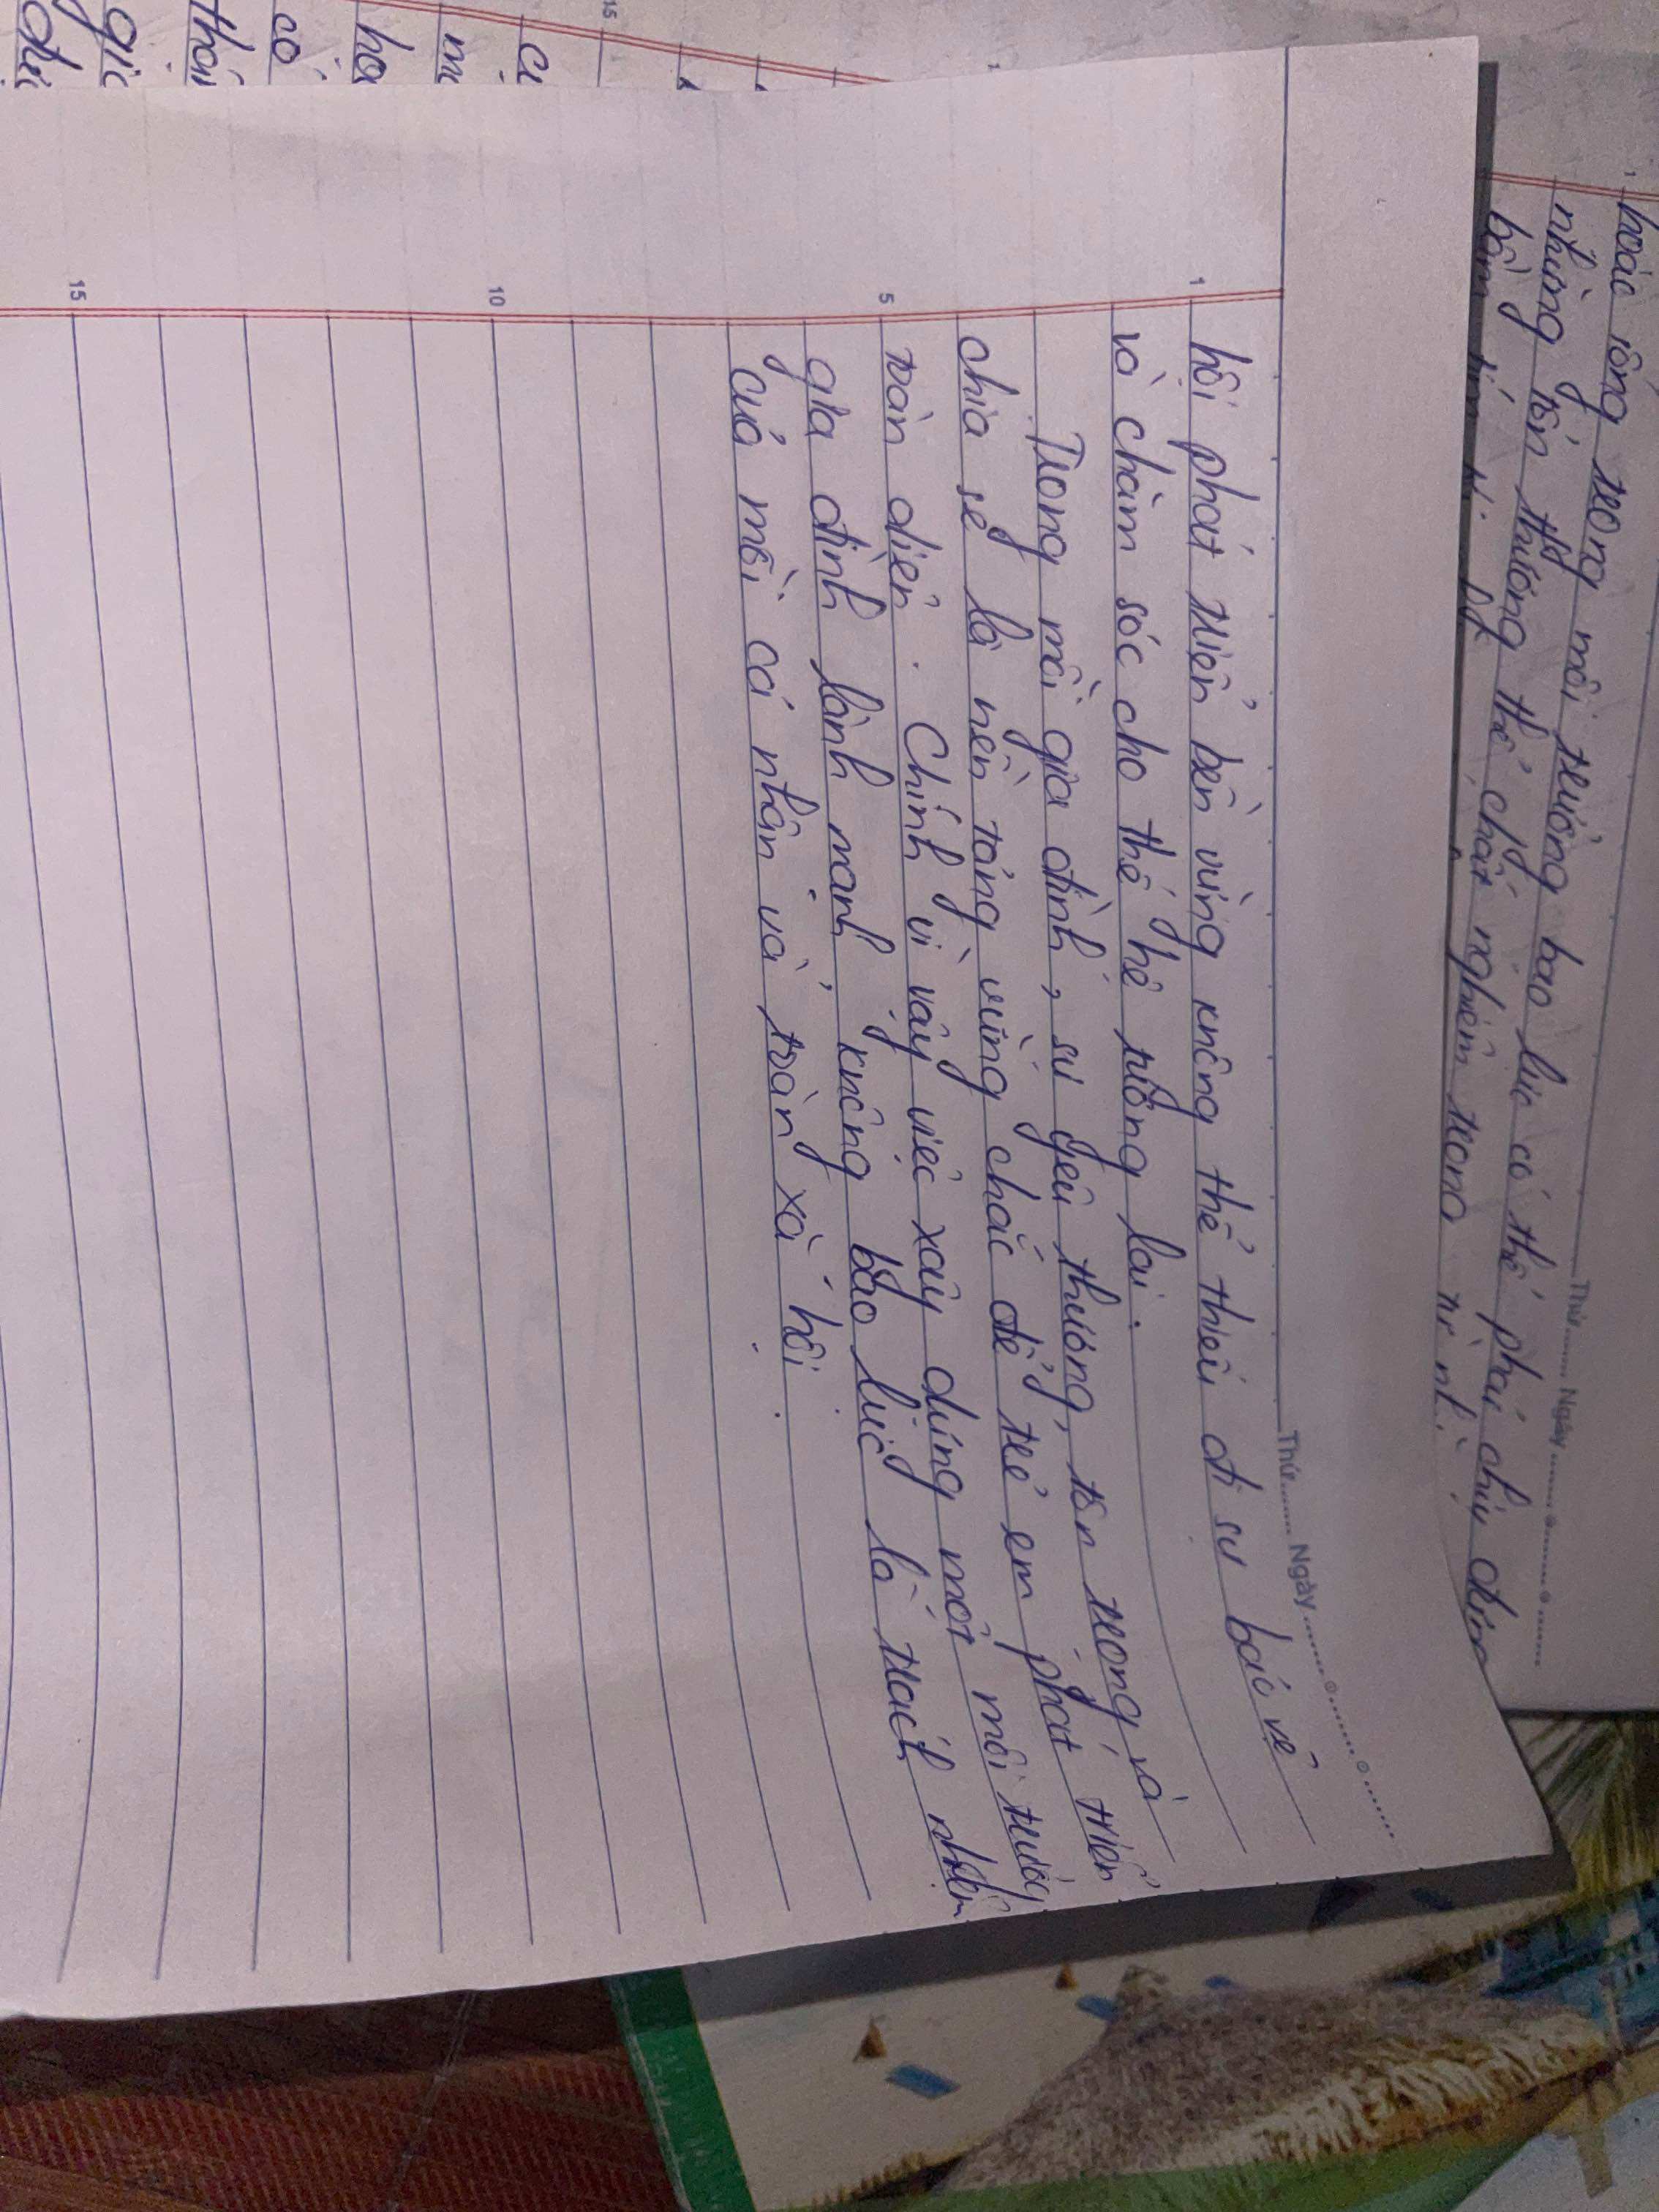 hoặc sống trong môi trường bạo lực có thể phải chịu đựng
những tổn thương thể chất nghiêm trọng
Thứ Ngày
Thứ Ngày
1 hội phát triển bền vững không thể thiếu đi sự bảo vệ
và chăm sóc cho thế hệ tương lai.
Trong mỗi gia đình, sự yêu thương, tôn trọng và
chia sẻ là nền tảng vững chắc để trẻ em phát triển
5 toàn diện. Chính vì vậy việc xây dựng một môi trường
gia đình lành mạnh, không bạo lực là trách nhiệm
của mỗi cá nhân và toàn xã hội.
10
15
15
có
thói